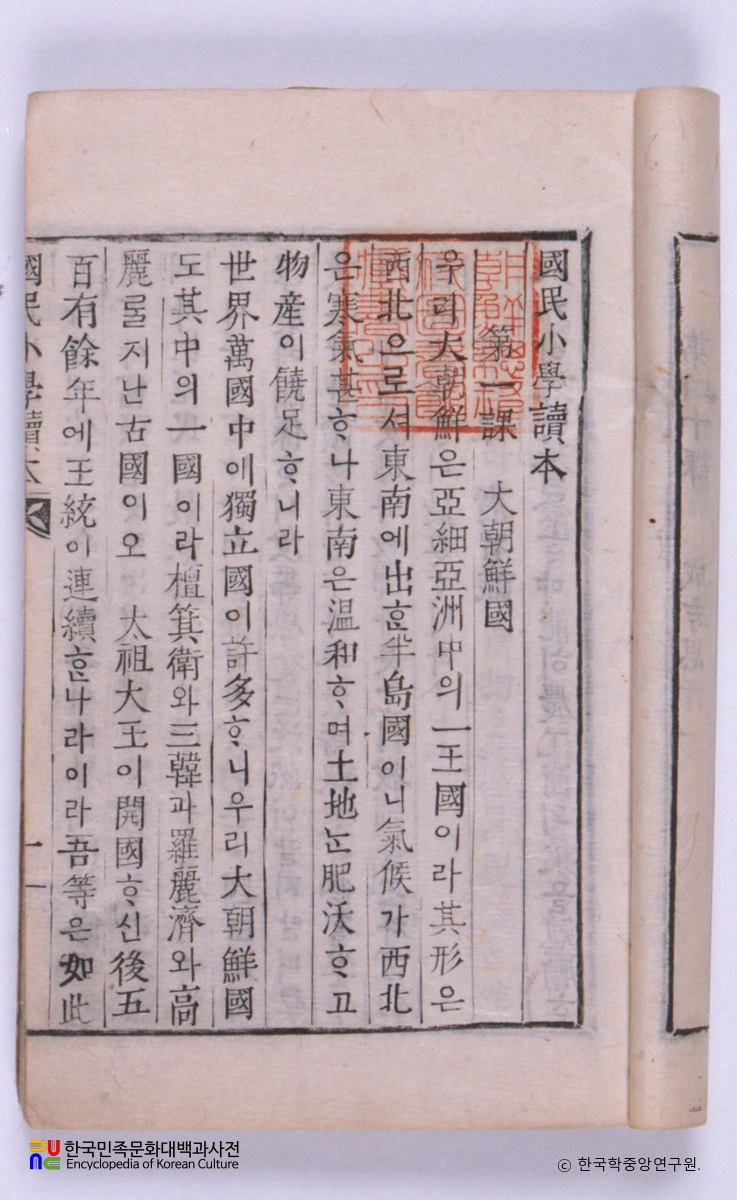 國民小學讀本
第一課 大朝鮮國
우리大朝鮮은亞細亞洲中의一王國이라其形은
西北으로셔東南에出ᄒᆞᆫ半島國이니氣候가西北
은寒氣甚ᄒᆞ나東南은溫和ᄒᆞ며土地ᄂᆞᆫ肥沃ᄒᆞ고
物産이饒足ᄒᆞ니라
世界萬國中에獨立國이許多ᄒᆞ니우리大朝鮮國
도其中의一國이라檀箕衛와三韓과羅麗濟와高
麗ᄅᆞᆯ지난古國이오 太祖大王이開國ᄒᆞ신後五
百有餘年에王統이連續ᄒᆞᆫ나라이라吾等은如此
國民小學讀本
一
한국민족문화대백과사전
Encyclopedia of Korean Culture
© 한국학중앙연구원.